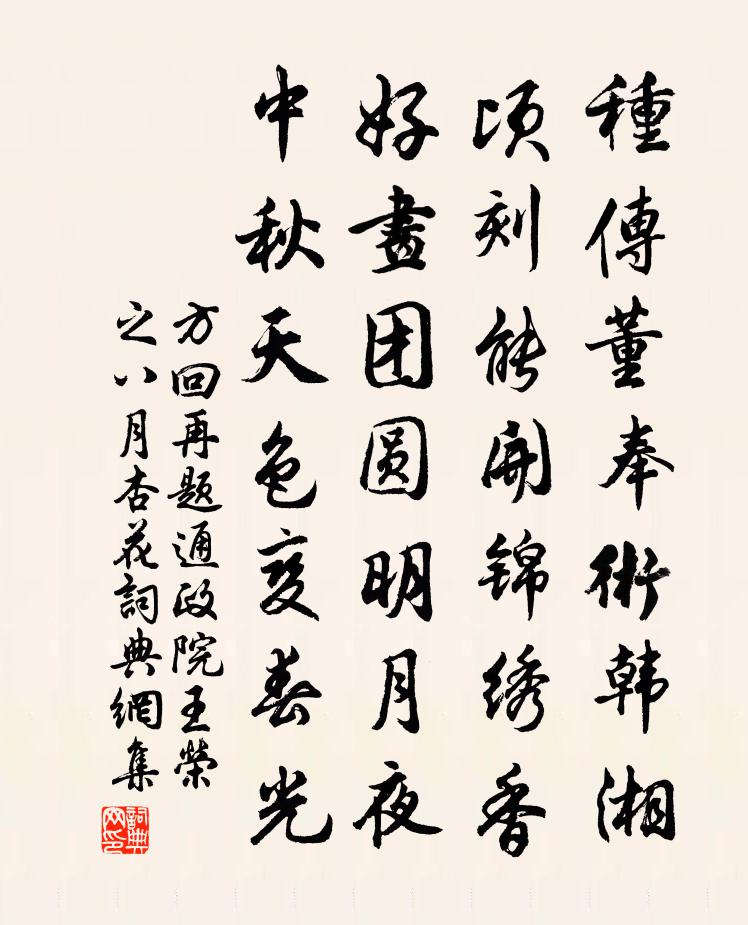 種傳董奉術韩湘
顷刻能開锦绣香
好畫团圆明月夜
中秋天色变春光
方回再题通政院王榮
之八月杏花詞典網集
詞典网印